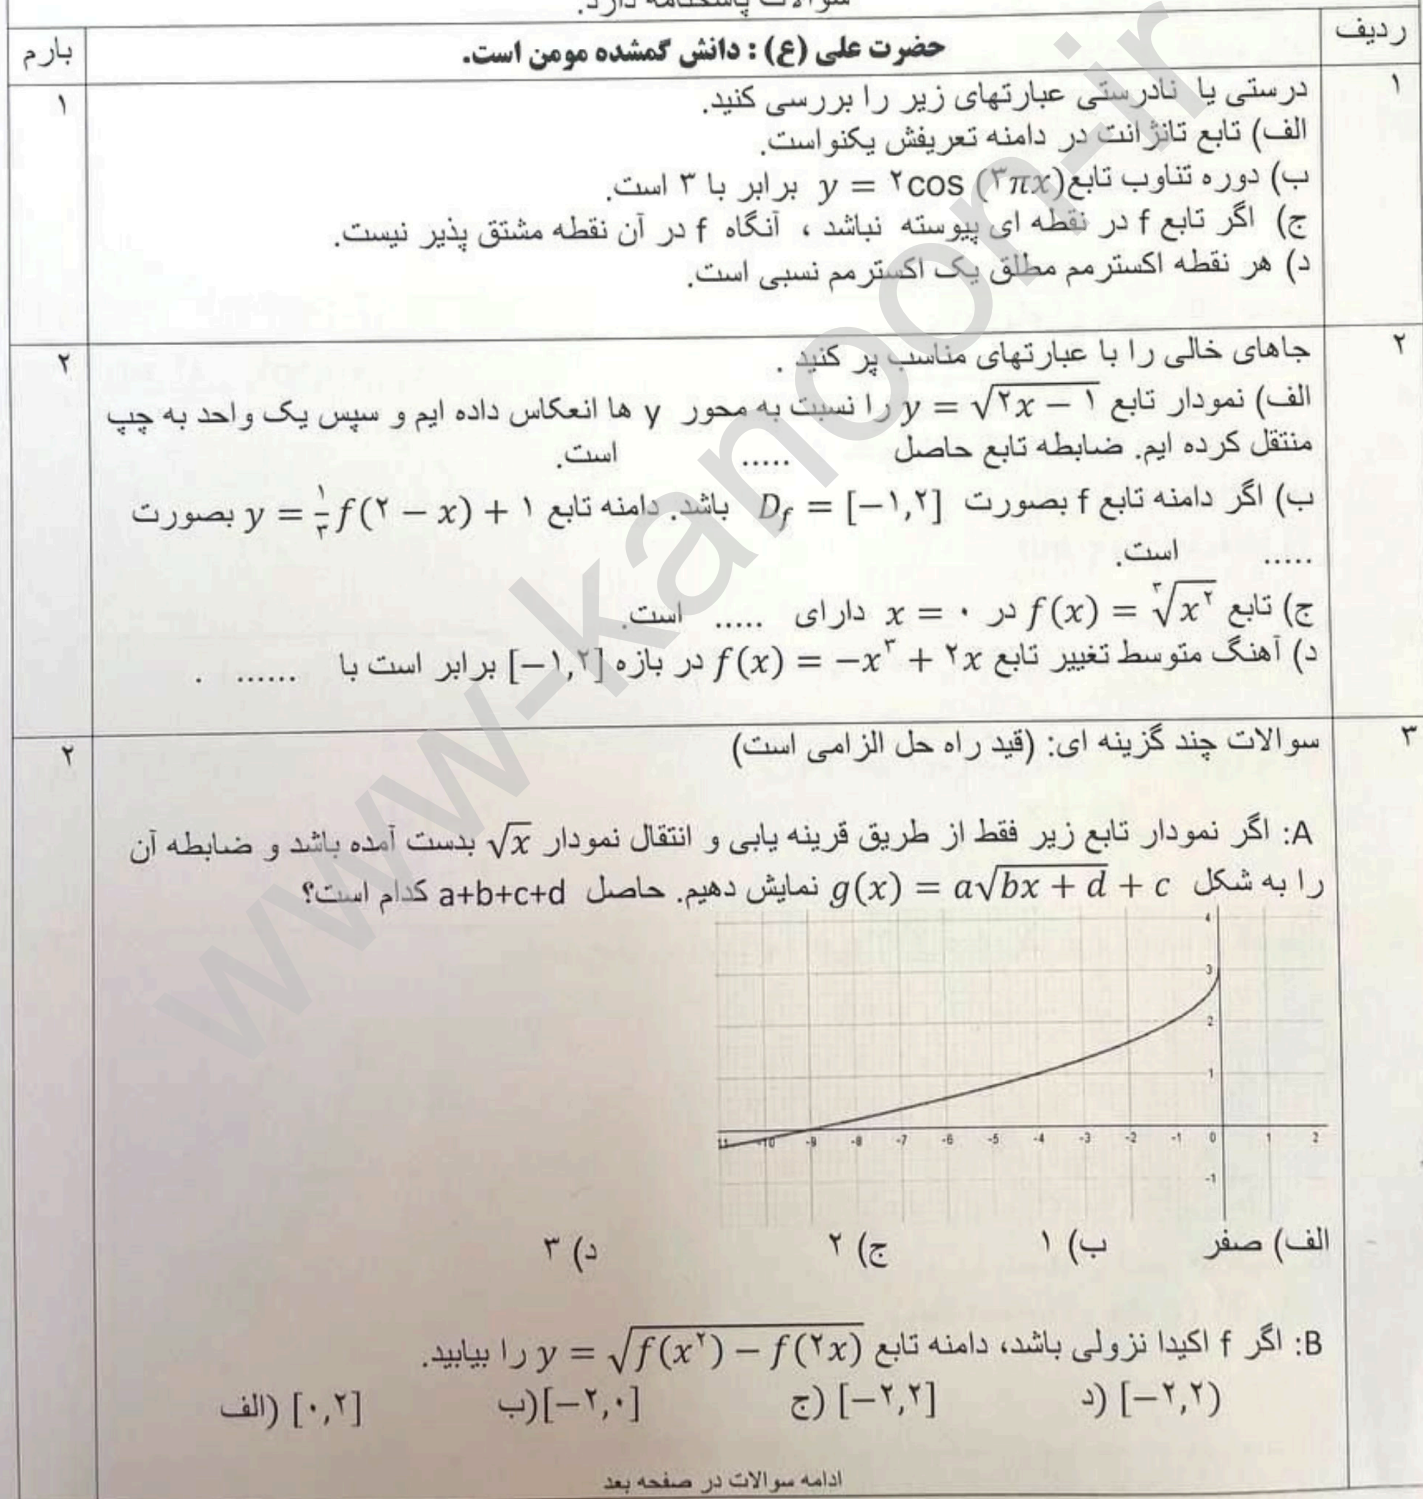 سوالات پاسخنامه دارد.
ردیف
حضرت علی (ع) : دانش گمشده مومن است.
بارم
۱
درستی یا نادرستی عبارتهای زیر را بررسی کنید.
۱
الف) تابع تانژانت در دامنه تعریفش یکنواست.
ب) دوره تناوب تابع y = ۲cos (۳πx) برابر با ۳ است.
ج) اگر تابع f در نقطه ای پیوسته نباشد ، آنگاه f در آن نقطه مشتق پذیر نیست.
د) هر نقطه اکسترمم مطلق یک اکسترمم نسبی است.
۲
جاهای خالی را با عبارتهای مناسب پر کنید .
۲
الف) نمودار تابع y = √(۲x − ۱) را نسبت به محور y ها انعکاس داده ایم و سپس یک واحد به چپ
منتقل کرده ایم. ضابطه تابع حاصل ..... است.
ب) اگر دامنه تابع f بصورت D_f = [−۱,۲] باشد. دامنه تابع y = ۱/۳ f(۲ − x) + ۱ بصورت
..... است.
ج) تابع f(x) = ∛(x²) در x = ۰ دارای ..... است.
د) آهنگ متوسط تغییر تابع f(x) = −x³ + ۲x در بازه [−۱,۲] برابر است با ...... .
۳
سوالات چند گزینه ای: (قید راه حل الزامی است)
۲
A: اگر نمودار تابع زیر فقط از طریق قرینه یابی و انتقال نمودار √x بدست آمده باشد و ضابطه آن
را به شکل g(x) = a√(bx + d) + c نمایش دهیم. حاصل a+b+c+d کدام است؟
4
3
2
1
11 -10 -9 -8 -7 -6 -5 -4 -3 -2 -1 0 1 2
-1
الف) صفر ب) ۱ ج) ۲ د) ۳
B: اگر f اکیدا نزولی باشد، دامنه تابع y = √(f(x²) − f(۲x)) را بیابید.
الف) [۰,۲] ب) [−۲,۰] ج) [−۲,۲] د) [−۲,۲)
ادامه سوالات در صفحه بعد
www-kanoon-ir